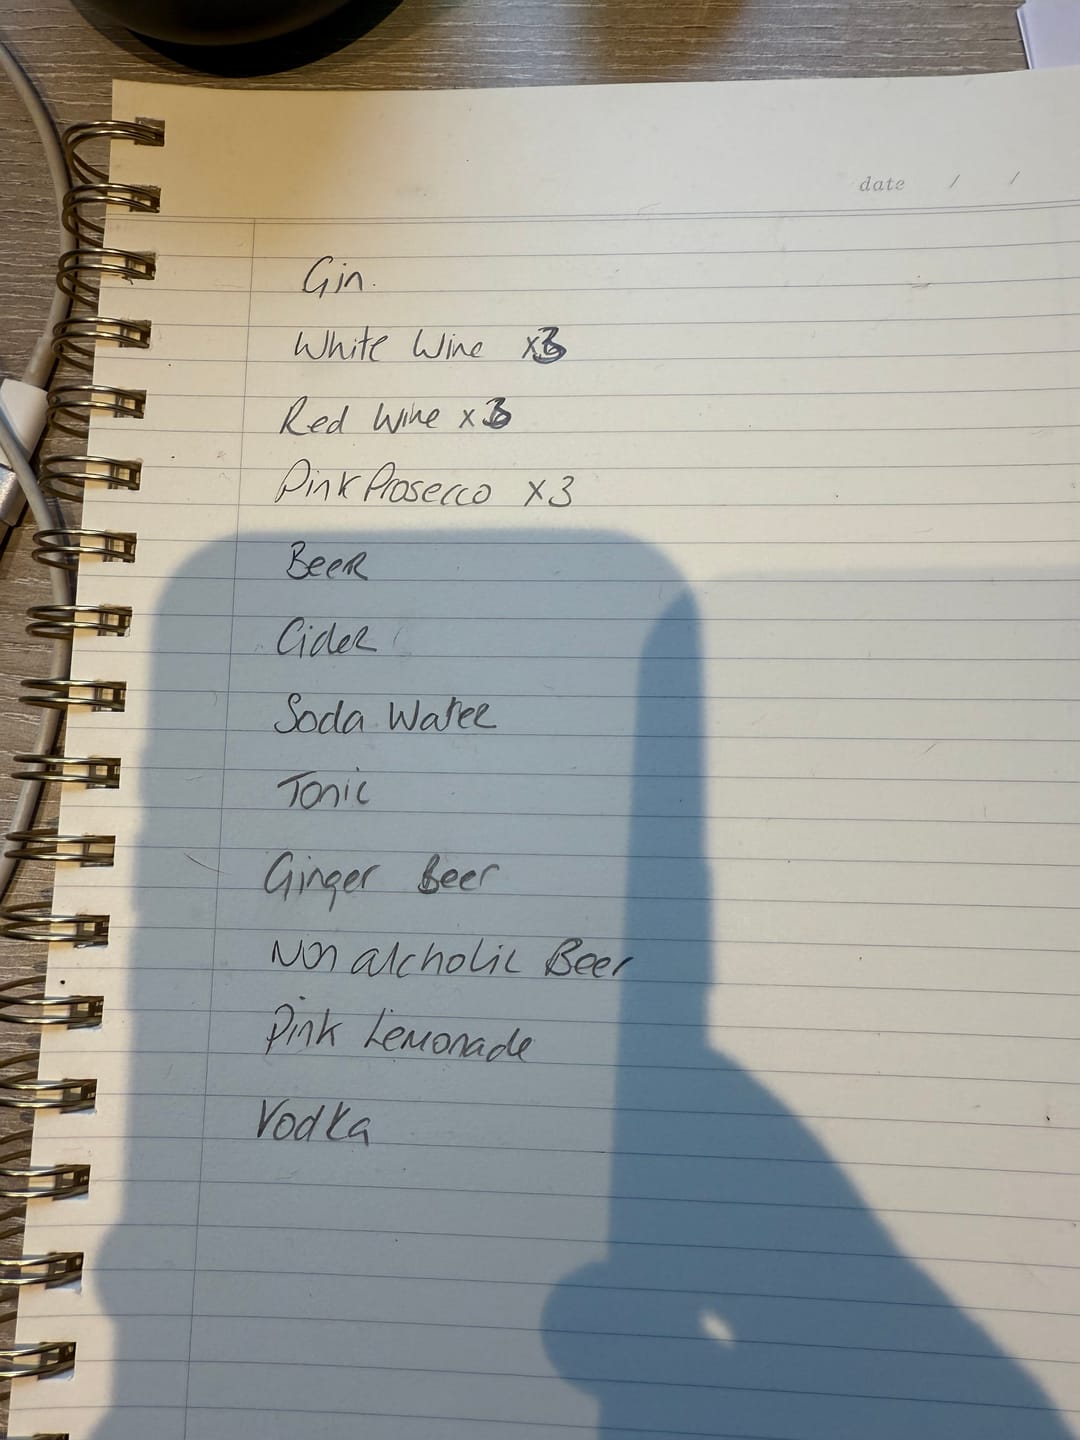 date / /
Gin.
White Wine x3
Red Wine x3
Pink Prosecco x3
Beer
Cider
Soda Water
Tonic
Ginger Beer
Non alcholic Beer
Pink Lemonade
Vodka